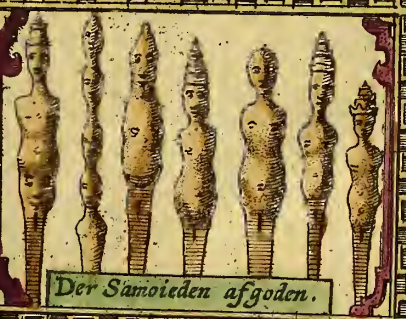 Der Samoieden afgoden.